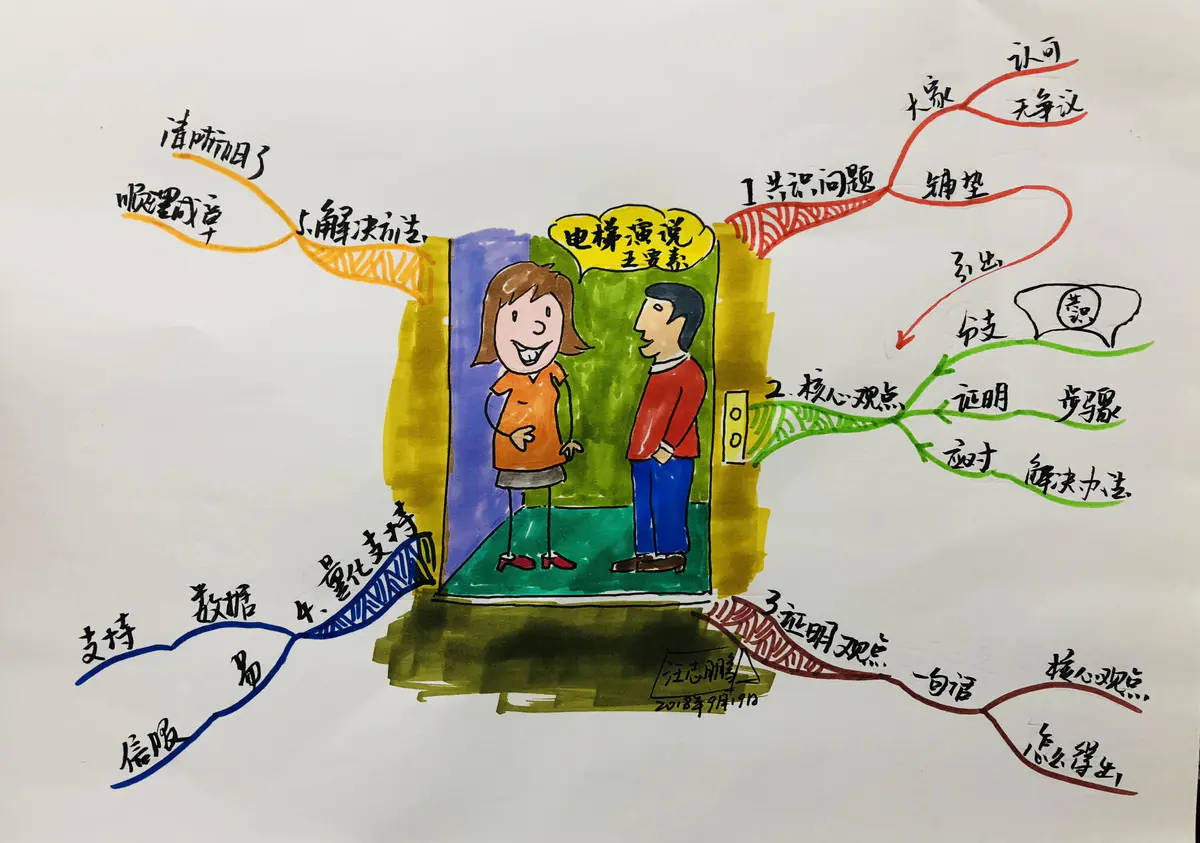 电梯演说
五要素
1 共识问题
大家
认可
无争议
铺垫
引出
2. 核心观点
分支
共识
证明
步骤
应对
解决办法
3. 证明观点
一句话
核心观点
怎么得出
4. 量化支持
数据
支持
易
信服
5. 解决方法
清晰明了
顺理成章
汪志鹏
2018年9月19日